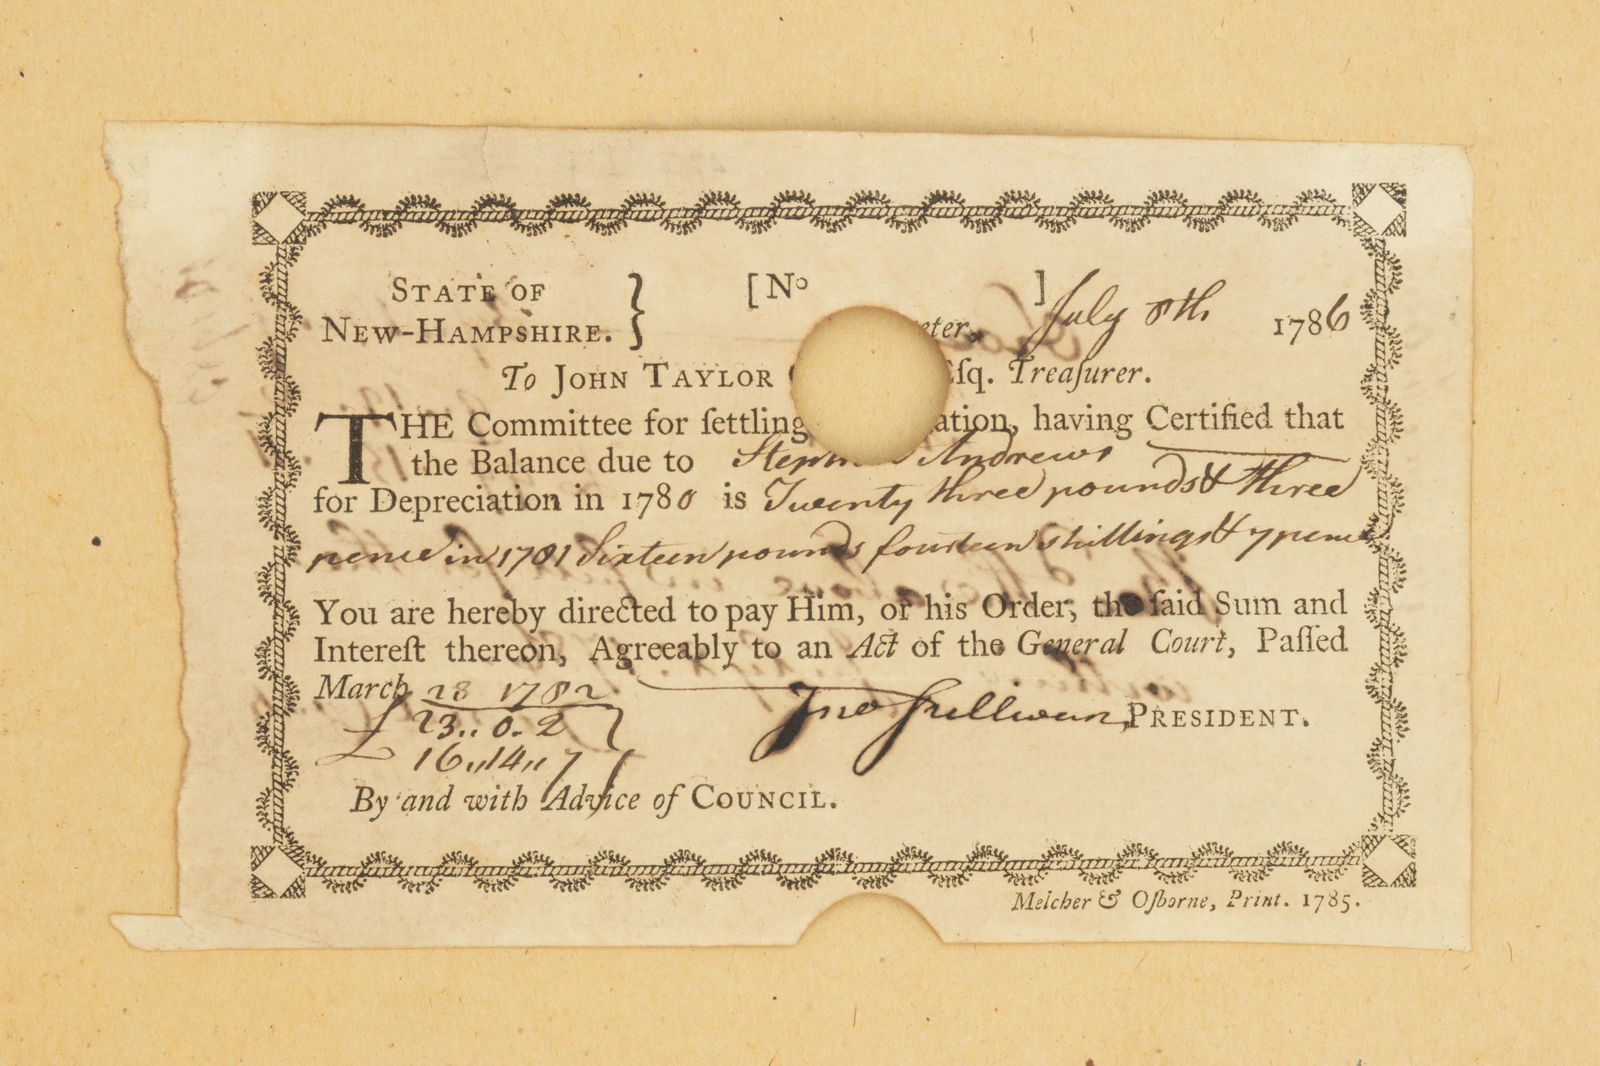 STATE OF
NEW-HAMPSHIRE. } [No ]
July 8th 1786
To JOHN TAYLOR Eſq. Treaſurer.
THE Committee for ſettling having Certified that
the Balance due to Andrews
for Depreciation in 1780 is Twenty three pounds & three
pence in 1781 Sixteen pounds fourteen shillings & 7 pence
You are hereby directed to pay Him, or his Order, the ſaid Sum and
Intereſt thereon, Agreeably to an Act of the General Court, Paſſed
March 28 1782.
Jno Sullivan, PRESIDENT.
£ 23 .. 0 .. 2
16 .. 14 .. 7
By and with Advice of COUNCIL.
Melcher & Oſborne, Print. 1785.